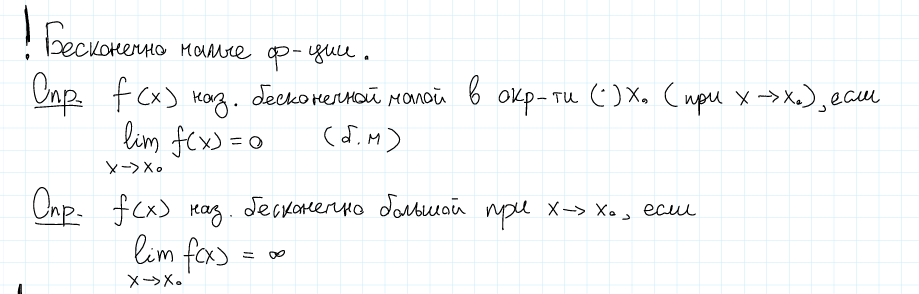 ! Бесконечно малые ф-ции.
Опр. f(x) наз. бесконечной малой в окр-ти (·) x₀ (при x→x₀), если
lim f(x) = 0 (б.м)
x→x₀
Опр. f(x) наз. бесконечно большой при x→x₀, если
lim f(x) = ∞
x→x₀